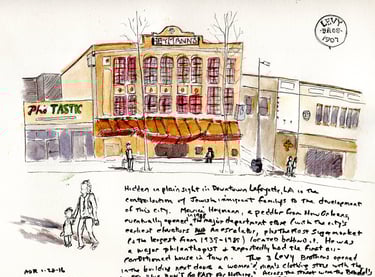 LEVY
BROS
1907
HEYMANN'S
Pho TASTIC
Hidden in plain sight in Downtown Lafayette, LA is the
contribution of Jewish immigrant families to the development
of this city. Maurice Heymann, a peddler from New Orleans,
eventually opened the major department store (with the city's
earliest elevators and an escalator, plus the Most Supermarket
(the largest from 1935-1985) located behind it. He was
a major philanthropist & reportedly had the first air-
conditioned house in town. The 3 Levy Brothers opened
in the building next door a women's men's clothing store with the